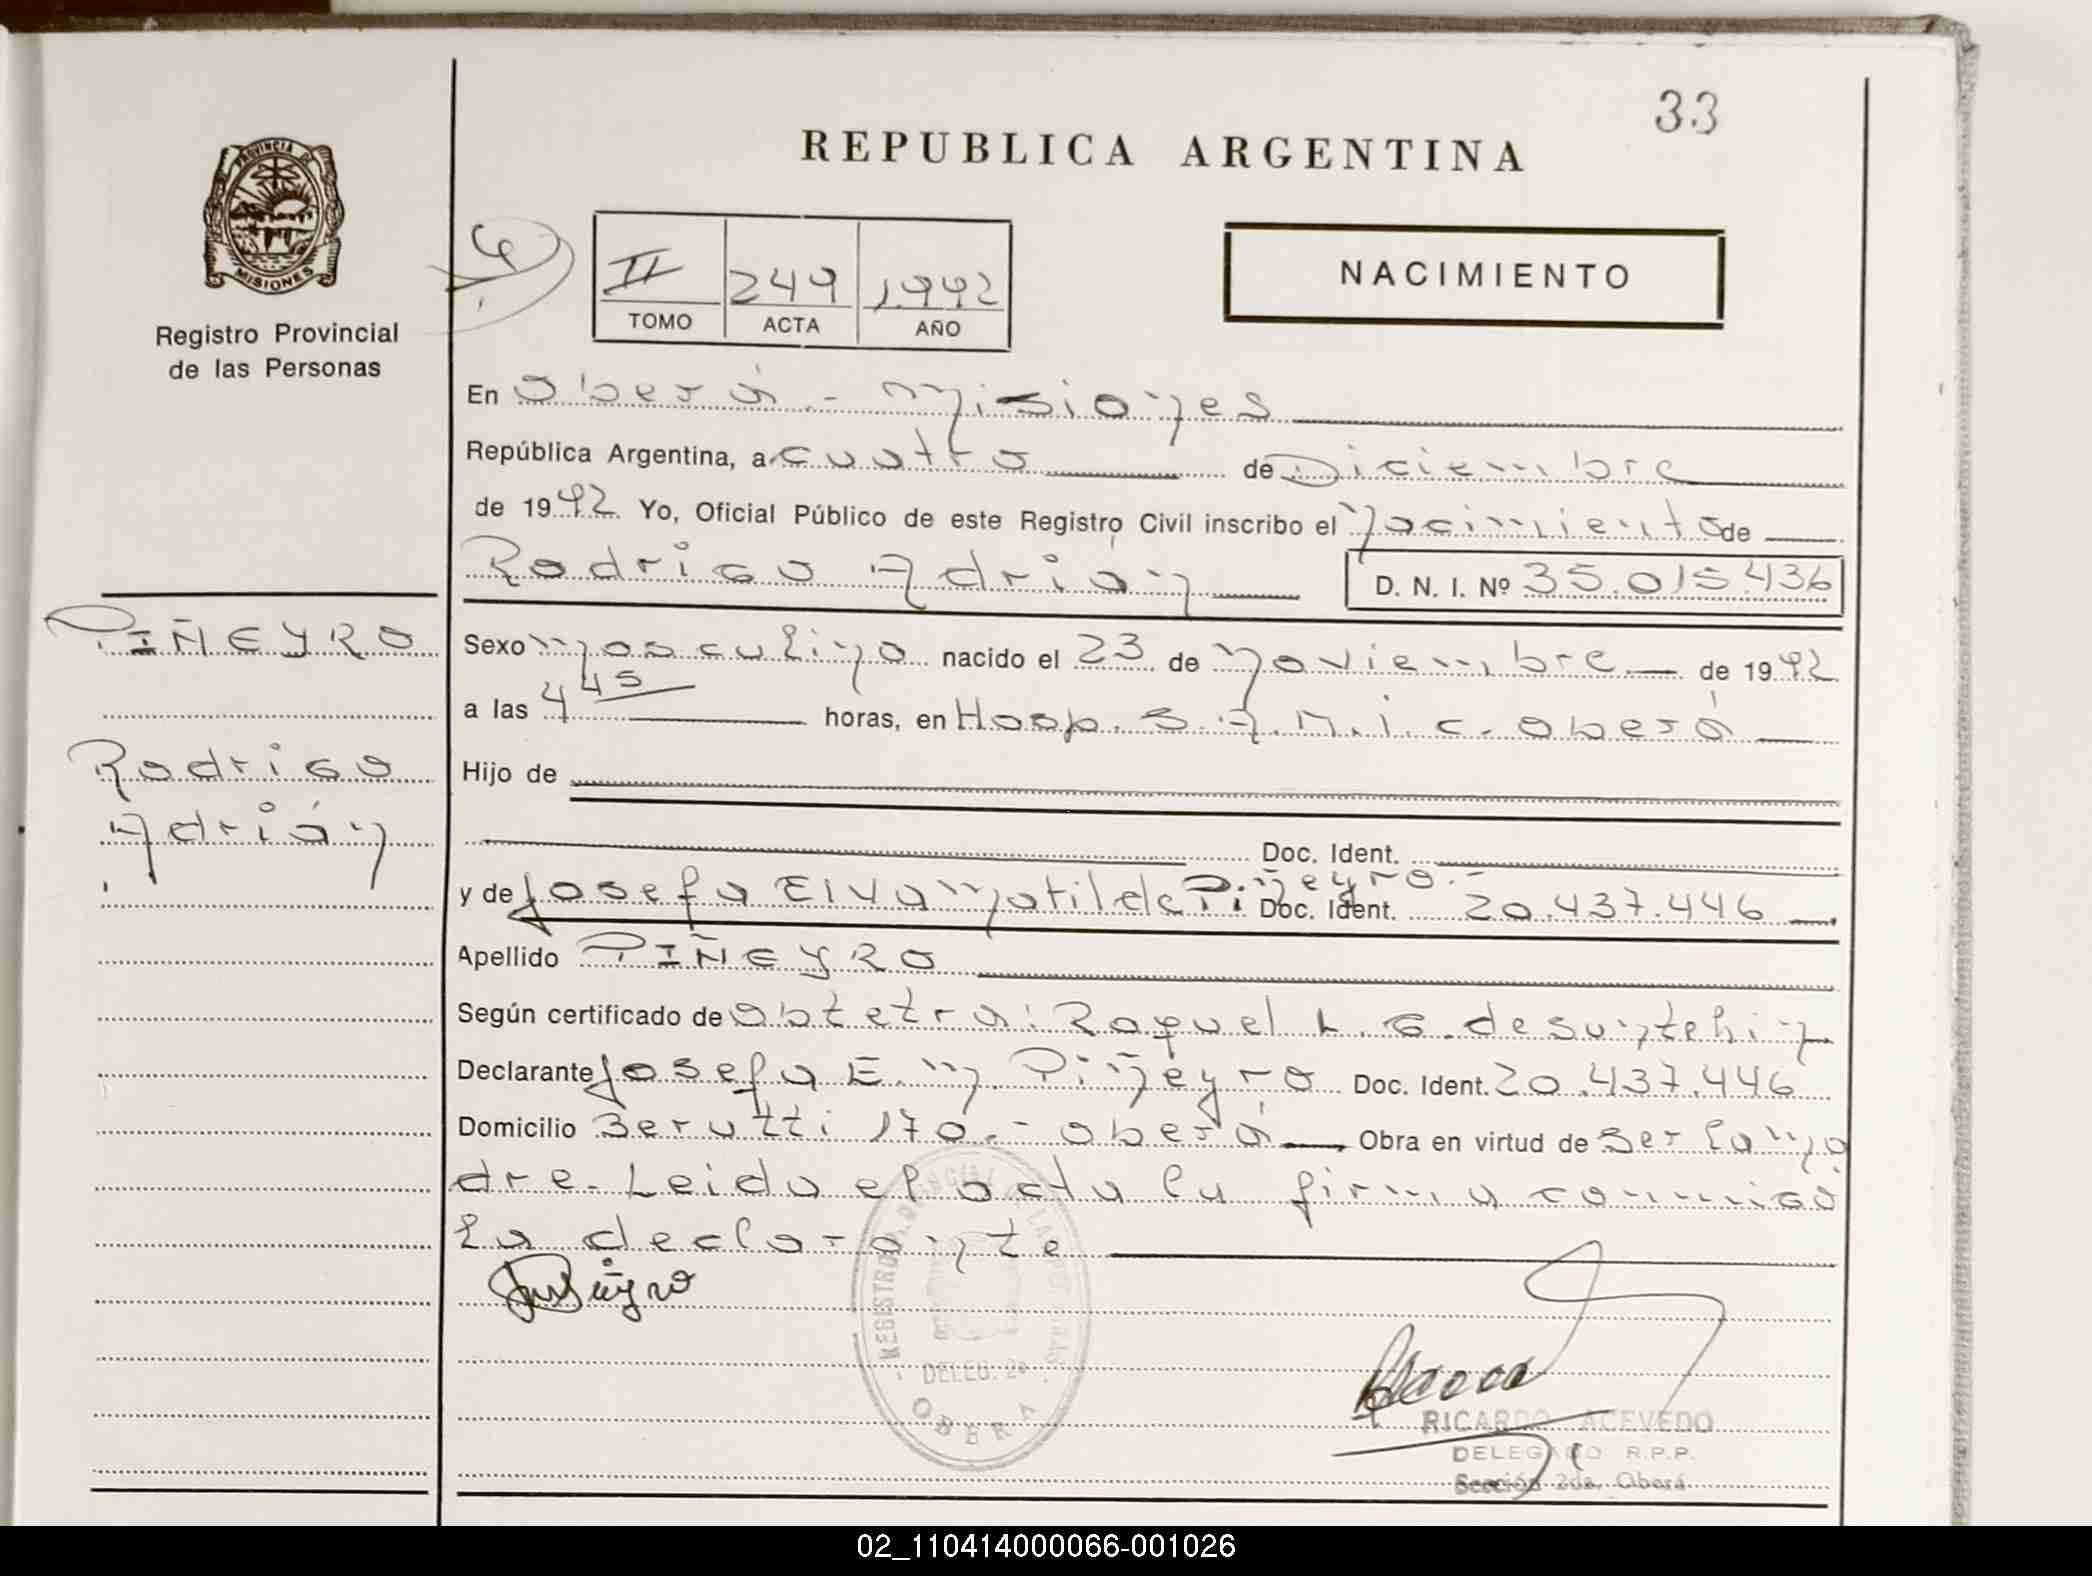 33
REPUBLICA ARGENTINA
PROVINCIA DE
MISIONES
Registro Provincial
de las Personas
II 249 1992
TOMO ACTA AÑO
NACIMIENTO
En Oberá - Misiones
República Argentina, a cuatro de Diciembre
de 1992 Yo, Oficial Público de este Registro Civil inscribo el Nacimiento de
Rodrigo Adrián D. N. I. Nº 35.015.436
PIÑEYRO
Rodrigo
Adrián
Sexo Masculino nacido el 23 de Noviembre de 1992
a las 4 45 horas, en Hosp. S.A.M.i.c. Oberá
Hijo de
Doc. Ident.
y de Josefa Elva Matilde Piñeyro.- Doc. Ident. 20.437.446
Apellido PIÑEYRO
Según certificado de Obtetra: Raquel L. G. de
Declarante Josefa E. M. Piñeyro Doc. Ident. 20.437.446
Domicilio Berutti 170.- Oberá Obra en virtud de ser la ma
dre. Leida el acta la firma conmigo
la declarante
REGISTRO PROVINCIAL DE LAS PERSONAS
DELEG. 2a
OBERA
RICARDO ACEVEDO
DELEGADO R.P.P.
Sección 2da. Oberá
02_110414000066-001026